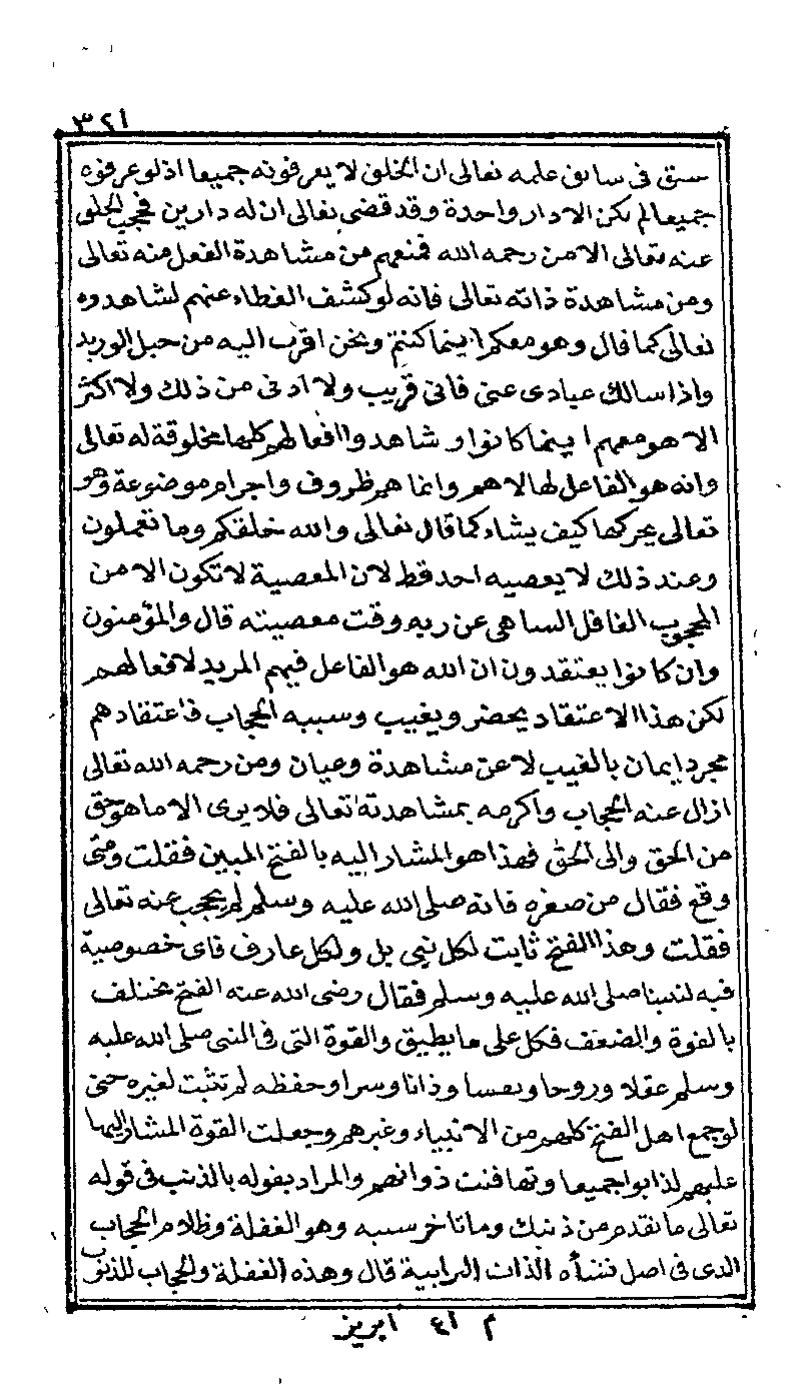 ٣٢١
سبق فى سابق علمه تعالى ان الخلق لا يعرفونه جميعا اذ لو عرفوه
جميعا لم تكن الا دار واحدة وقد قضى تعالى ان له دارين فحجب الخلق
عنه تعالى الا من رحمه الله فمنعهم من مشاهدة الفعل منه تعالى
ومن مشاهدة ذاته تعالى فانه لو كشف الغطاء عنهم لشاهدوه
تعالى كما قال وهو معكم اينما كنتم ونحن اقرب اليه من حبل الوريد
واذا سالك عبادى عنى فانى قريب ولا ادنى من ذلك ولا اكثر
الا هو معهم اينما كانوا و شاهدوا افعالهم كلها مخلوقة له تعالى
وانه هو الفاعل لها لا هم وانما هم ظروف واجرام موضوعة وهو
تعالى يحركها كيف يشاء كما قال تعالى والله خلقكم وما تعملون
وعند ذلك لا يعصيه احد قط لان المعصية لا تكون الا من
المحجوب الغافل الساهى عن ربه وقت معصيته قال والمؤمنون
وان كانوا يعتقدون ان الله هو الفاعل فيهم المريد لافعالهم
لكن هذا الاعتقاد يحضر ويغيب وسببه الحجاب فاعتقادهم
مجرد ايمان بالغيب لا عن مشاهدة وعيان ومن رحمه الله تعالى
ازال عنه الحجاب واكرمه بمشاهدته تعالى فلا يرى الا ما هو حق
من الحق والى الحق فهذا هو المشار اليه بالفتح المبين فقلت ومتى
وقع فقال من صغره فانه صلى الله عليه وسلم لم يحجب عنه تعالى
فقلت وهذا الفتح ثابت لكل نبى بل ولكل عارف فاى خصوصية
فيه لنبينا صلى الله عليه وسلم فقال رضى الله عنه الفتح يختلف
بالقوة والضعف فكل على ما يطيق والقوة التى فى النبى صلى الله عليه
وسلم عقلا وروحا ونفسا وذاتا وسرا وحفظه لم تثبت لغيره حتى
لو جمع اهل الفتح كلهم من الانبياء وغيرهم وجعلت القوة المشار اليها
عليهم لذابوا جميعا وتهافتت ذواتهم والمراد بقوله بالذنب فى قوله
تعالى ما تقدم من ذنبك وما تاخر سببه وهو الغفلة وظلام الحجاب
الذى فى اصل نشأة الذات الترابية قال وهذه الغفلة والحجاب للذنوب
م ٤١ ابريز